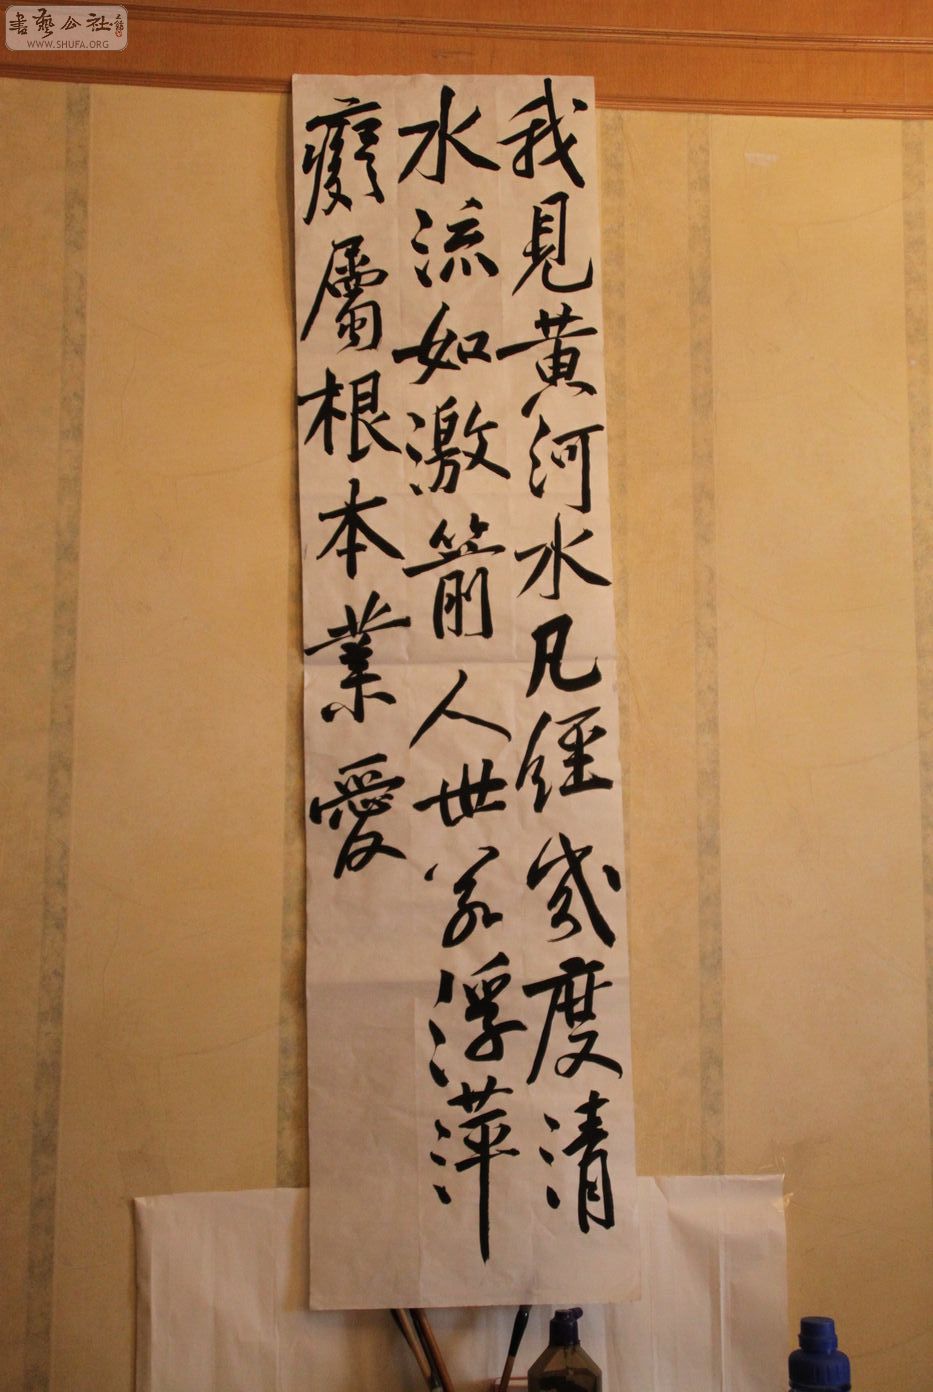 書藝公社
WWW.SHUFA.ORG
我見黄河水凡經幾度清
水流如激箭人世若浮萍
癡屬根本業愛